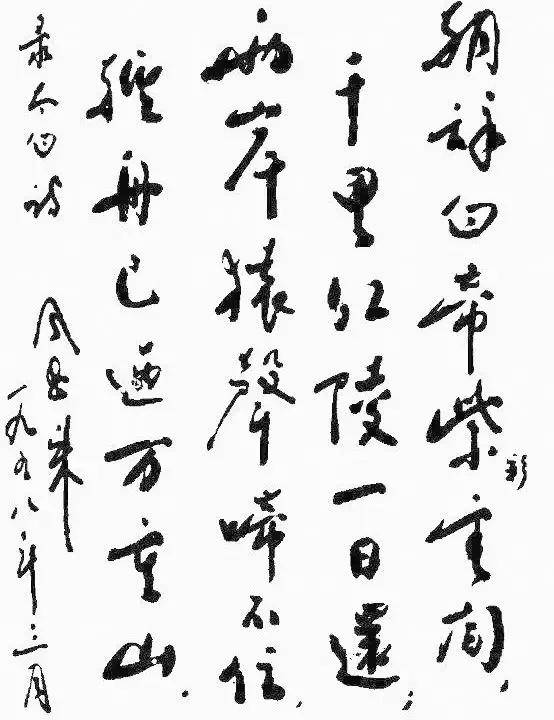 朝辞白帝紫云间，
彩
千里江陵一日還；
两岸猿聲啼不住，
輕舟已過万重山.
录太白诗
周恩来
一九五八年三月